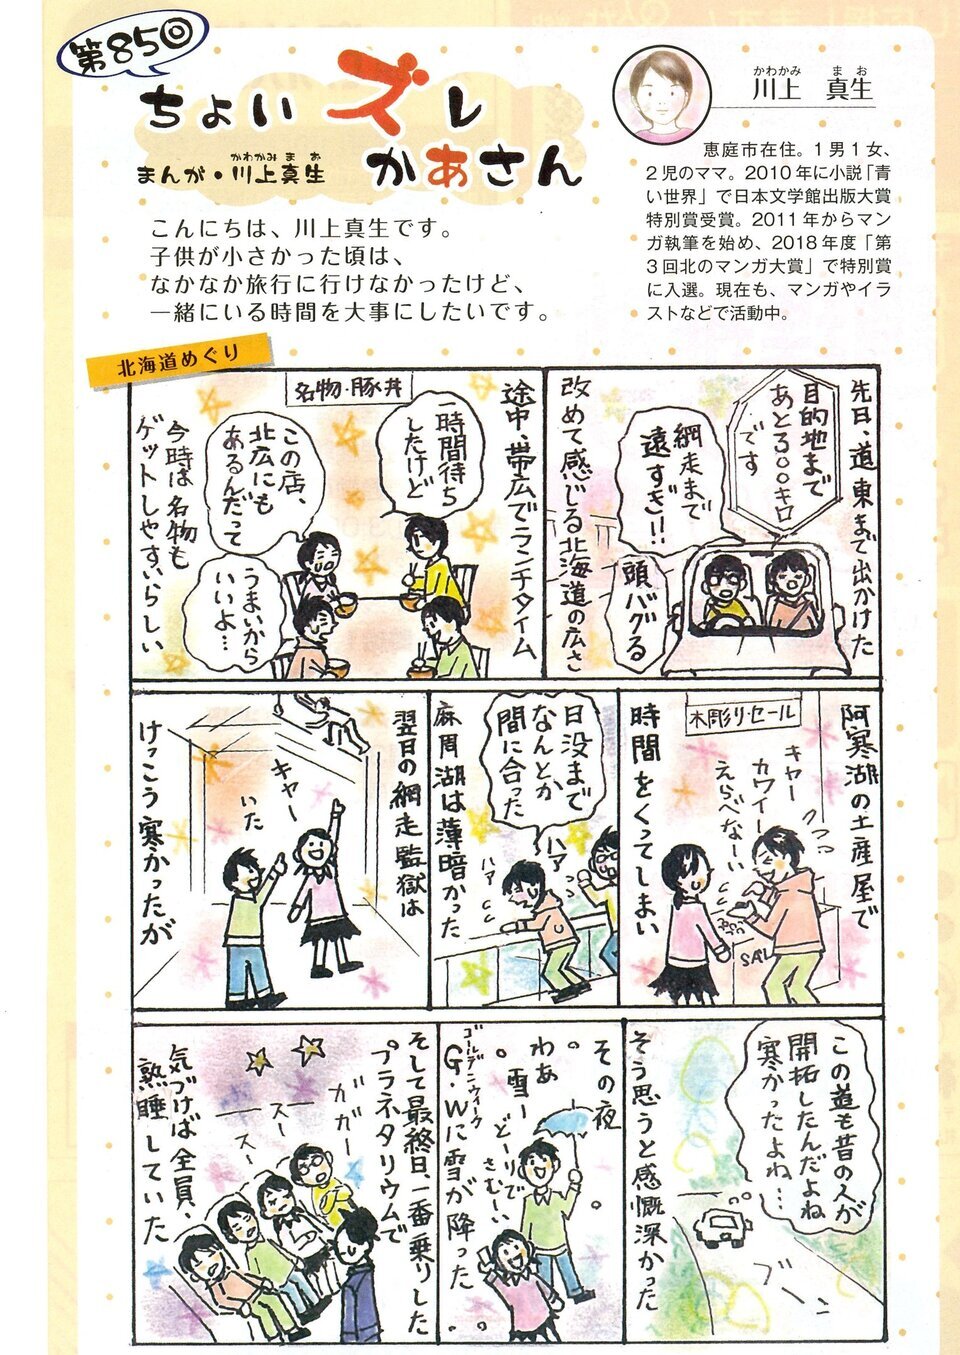 第85回
ちょい ズレ
かあさん
まんが・川上真生
かわかみ まお
こんにちは、川上真生です。
子供が小さかった頃は、
なかなか旅行に行けなかったけど、
一緒にいる時間を大事にしたいです。
かわかみ まお
川上 真生
恵庭市在住。1男1女、
2児のママ。2010年に小説「青
い世界」で日本文学館出版大賞
特別賞受賞。2011年からマン
ガ執筆を始め、2018年度「第
3回北のマンガ大賞」で特別賞
に入選。現在も、マンガやイラ
ストなどで活動中。
北海道めぐり
先日、道東まで出かけた
目的地まで
あと300キロ
です
網走まで
遠すぎ!!
頭バグる
改めて感じる北海道の広さ
途中、帯広でランチタイム
名物・豚丼
一時間待ち
したけど
この店、
北広にも
あるんだって
うまいから
いいよ…
今時は名物も
ゲットしやすいらしい
阿寒湖の土産屋で
木彫り・セール
キャー
カワイー
えらべなーい
SALE
時間をくってしまい
日没まで
なんとか
間に合った
ハァ
ハァ
麻周湖は薄暗かった
翌日の網走監獄は
キャー
いた
けっこう寒かったが
この道も昔の人が
開拓したんだよね
寒かったよね…
ブーン
そう思うと感慨深かった
その夜
わあ
雪ー
どーりで
さむーい
ゴールデンウィーク
G.Wに雪が降った
そして最終日、一番乗りした
プラネタリウムで
ガガー
スー
スー
気づけば全員、
熟睡していた